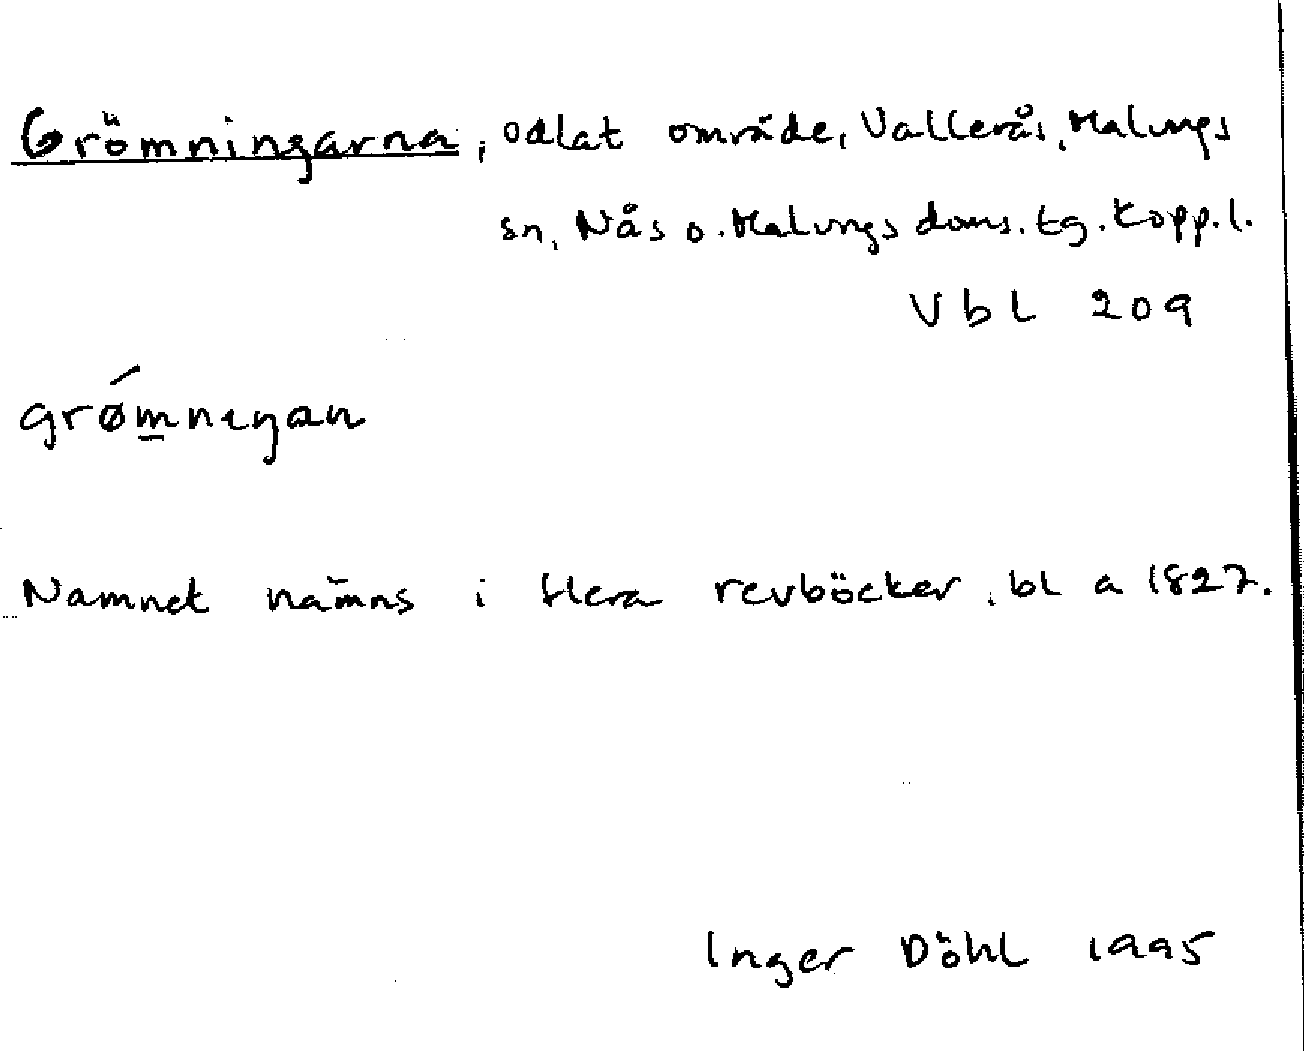 Grömningarna, odlat område, Vallerås, Malungs
sn, Nås o. Malungs doms. tg. Kopp. l.
Vbl 209
grø´m̲nıŋan
Namnet nämns i flera revböcker, bl a 1827.
Inger Döhl 1995